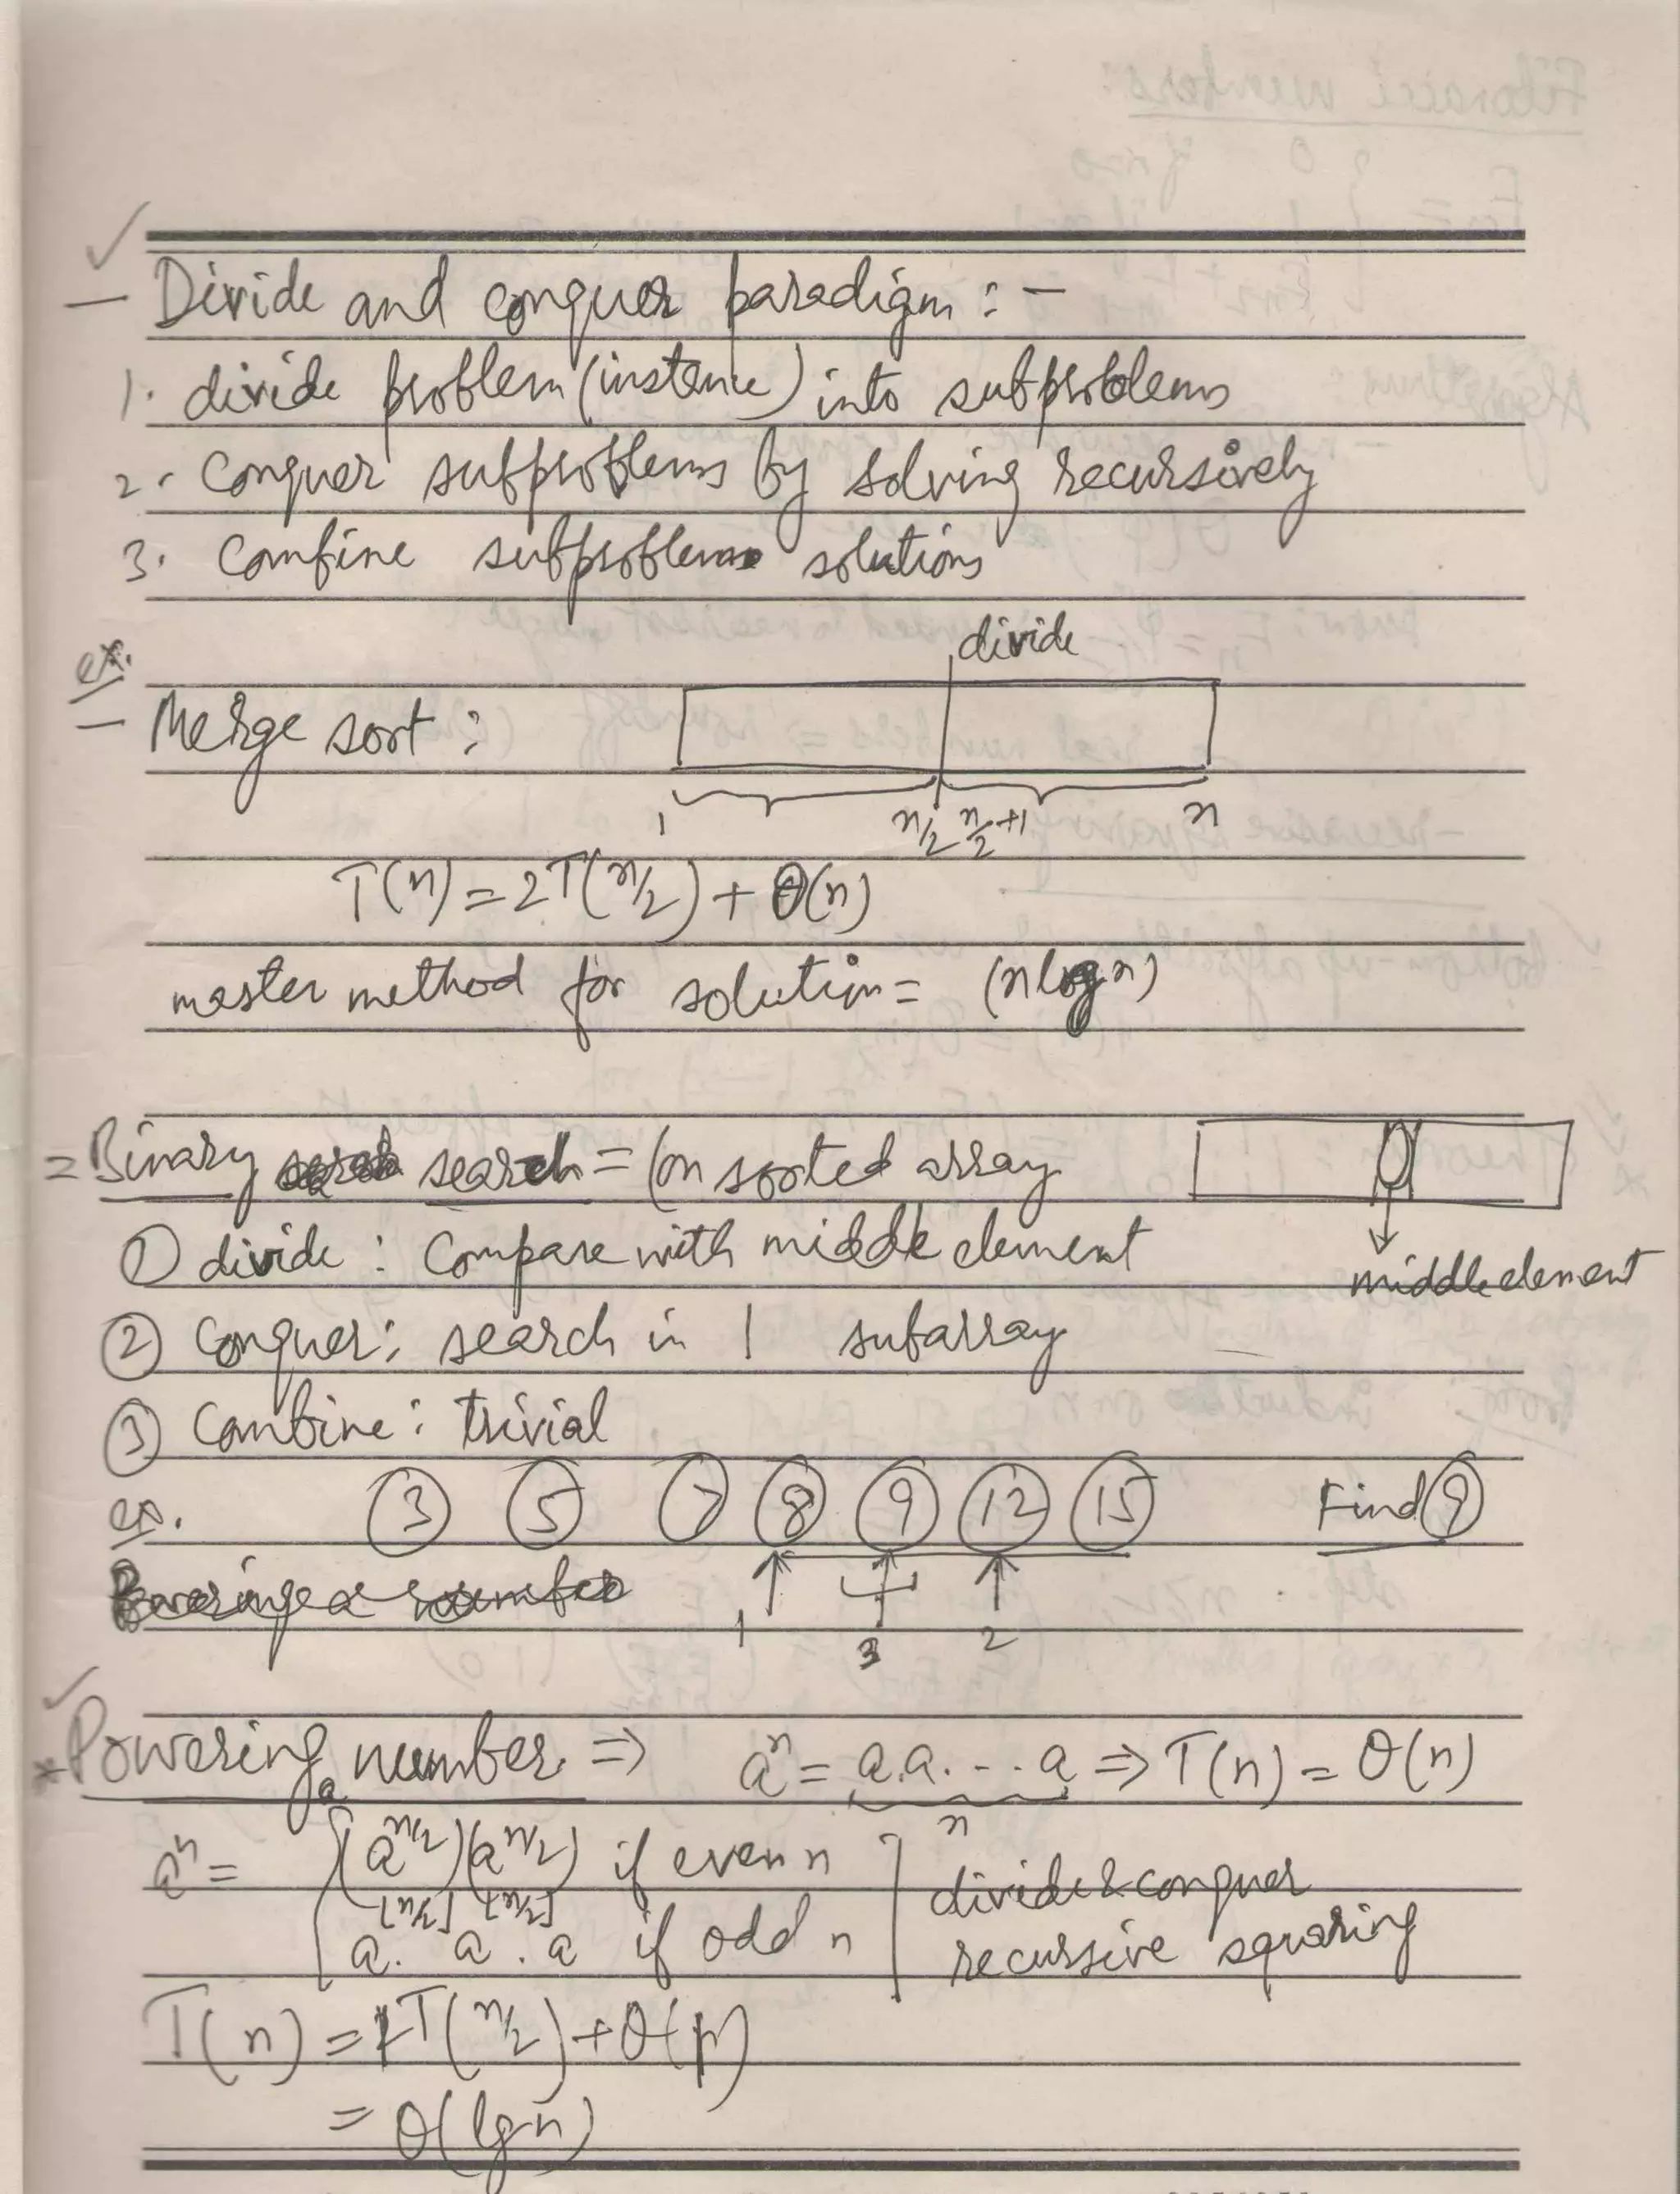 - Divide and conquer paradigm : -
1. divide problem (instance) into subproblems
2. Conquer subproblems by solving recursively
3. Combine subproblem solutions
ex.
divide
- Merge sort :
1 n/2 n/2+1 n
T(n) = 2T(n/2) + Θ(n)
master method for solution = (n log n)
= Binary search = (on sorted array
① divide : Compare with middle element
middle element
② Conquer : search in 1 subarray
③ Combine : trivial
ex. ③ ⑤ ⑦ ⑧ ⑨ ⑫ ⑮ Find ⑨
1 3 2
* Powering a number ⇒ aⁿ = a.a. - . . a ⇒ T(n) = Θ(n)
n
aⁿ = { (a^n/2)(a^n/2) if even n
a. a^⌊n/2⌋ . a^⌊n/2⌋ if odd n
divide & conquer
recursive squaring
T(n) = 1T(n/2) + Θ(1)
= Θ(lg n)